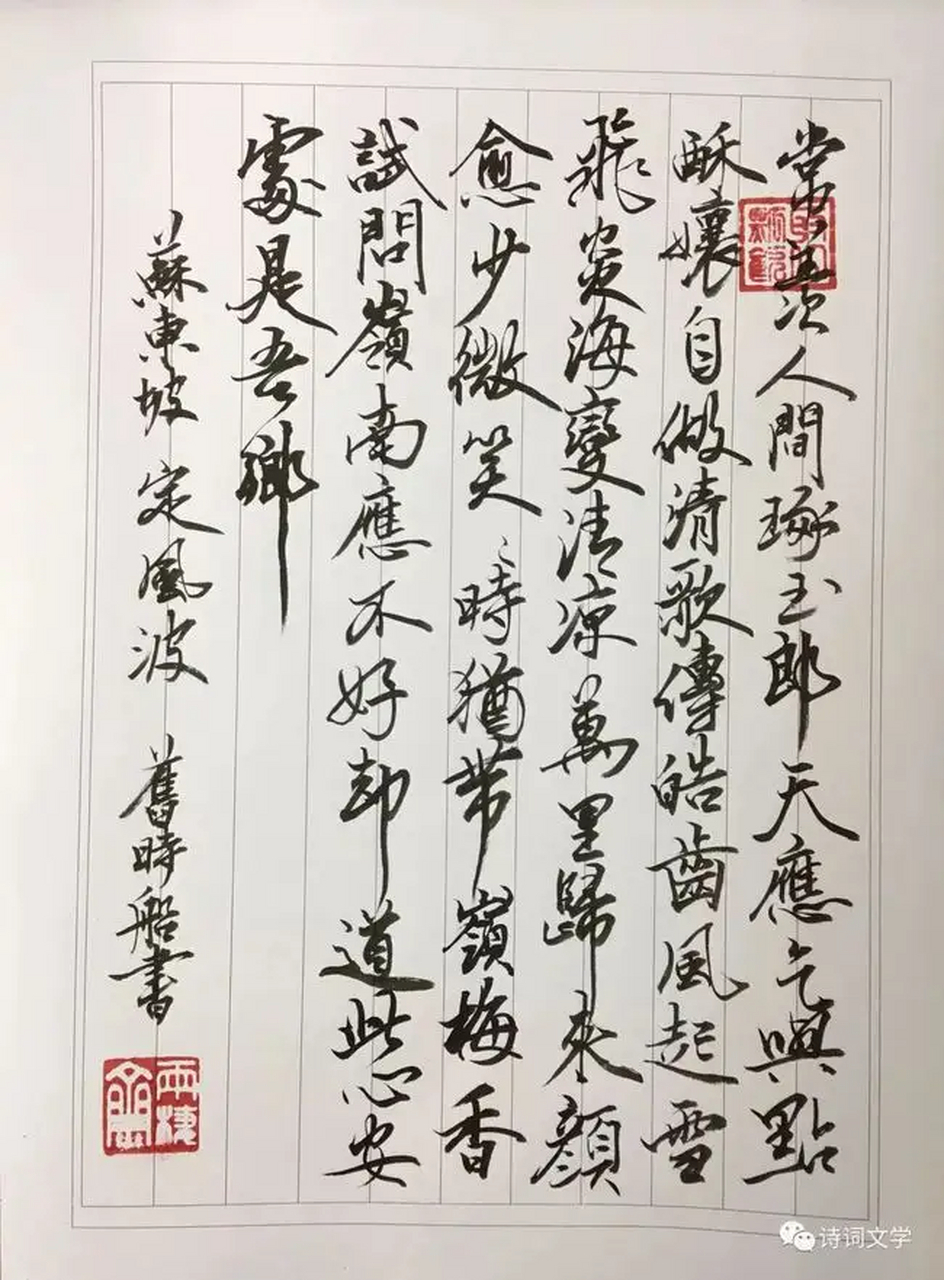 常羡人間琢玉郎天應乞與點
酥孃自做清歌傳皓齒風起雪
飛炎海變清凉萬里歸來顏
愈少微笑笑時猶帶嶺梅香
試問嶺南應不好却道此心安
處是吾鄉
蘇東坡 定風波 舊時船書
诗词文学